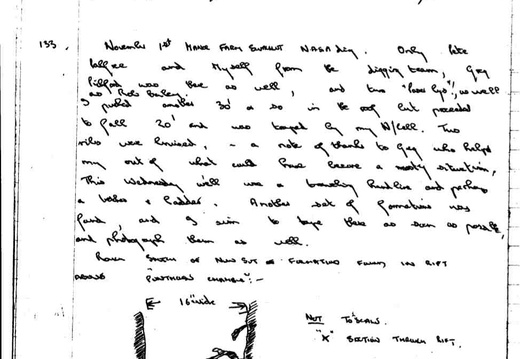 133. November 1st Manor Farm Swallet NASA dig. Only Pete
and Myself from the digging team, Greg
was there as well, and two "", as well
as Rob
I pushed another 30' or so in the roof but proceeded
to fall 20' and was by my N/Cell. Two
ribs were bruised, - a note of thanks to Greg who helped
my out of what could have become a nasty situation,
This Wednesday we'll use a handline and perhaps
a & ladder. Another set of formations was
found, and I aim to tape these as soon as possible,
and photograph them as well.
Rough Sketch of New Set of Formations Found in Rift
above "" :-
16" wide
Not To Scale.
"X" Section Through Rift.